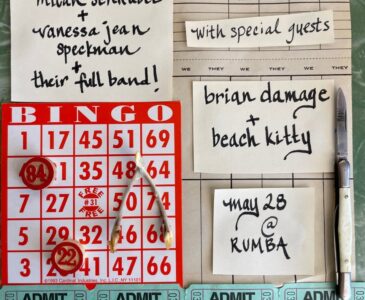 +
vanessa jean
speckman
+
their full band!
with special guests
WE THEY WE THEY WE THEY
brian damage
+
beach kitty
may 28
@
RUMBA
BINGO
1 17 45 51 69
84 31 35 48 64
7 27 FREE #31 FREE 50 74
5 29 52 47
3 22 41 46 66
©1993 Cardinal Industries, Inc. L.I.C., NY 11101
ADMIT ADMIT ADMIT ADMIT